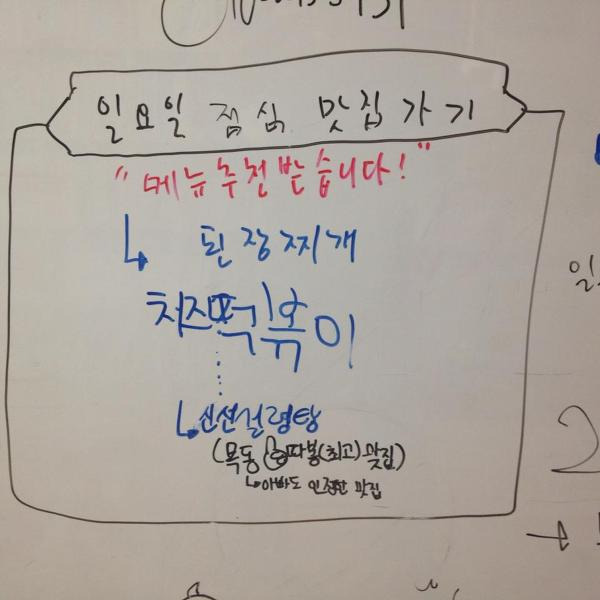 일요일 점심 맛집 가기
"메뉴추천받습니다!"
↳ 된장찌개
치즈떡볶이
↳신선설렁탕
(목동 따봉(최고)맛집)
↳아빠도 인정한 맛집
일
2